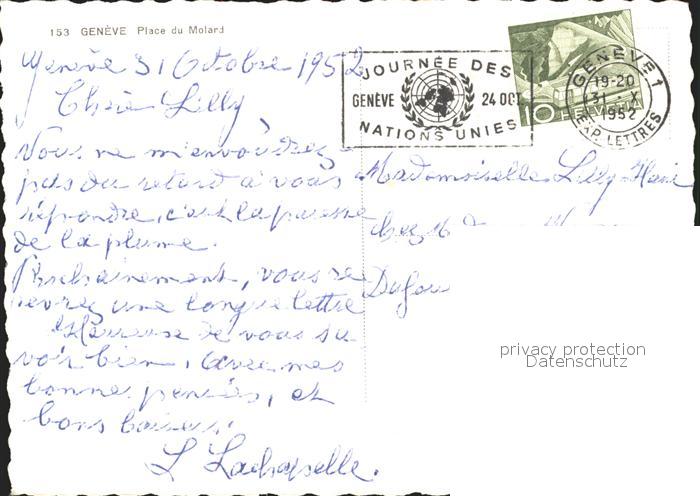 153 GENÈVE Place du Molard
Genève 31 Octobre 1952
Chère Lilly,
Vous ne m'envoudrez
pas du retard à vous
répondre, c'est la paresse
de la plume.
Prochainement, vous re
cevrez une longue lettre
Heureuse de vous sa
voir bien, avec mes
bonne pensées, et
bons baisers.
L Lachapelle.
JOURNÉE DES
GENÈVE 24 OCT
NATIONS UNIES
GENÈVE 1
19-20
X
1952
EXP. LETTRES
10 HELVETIA
Mademoiselle Lilly
chez M
Dufou
privacy protection
Datenschutz